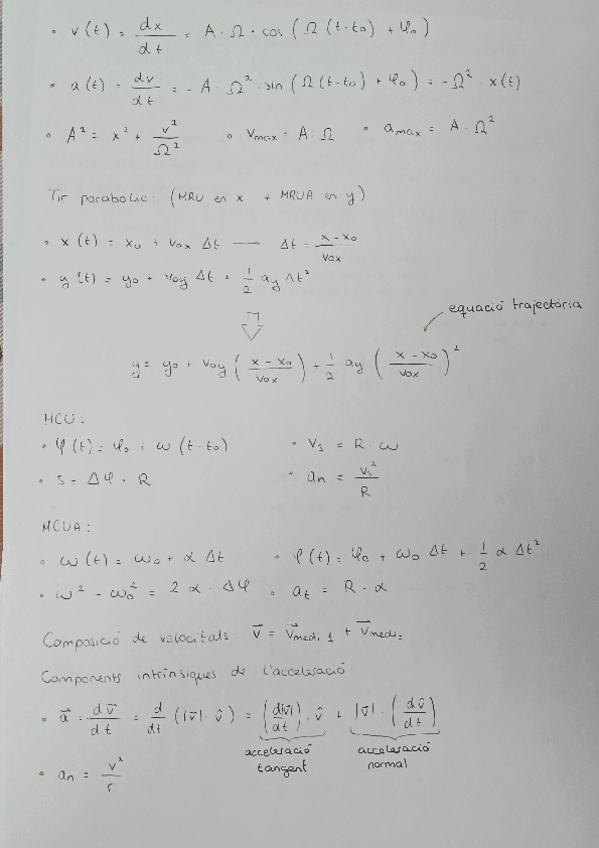 • v(t) = dx/dt = A · Ω · cos (Ω (t-t₀) + φ₀)
• a(t) = dv/dt = - A · Ω² · sin (Ω (t-t₀) + φ₀) = - Ω² · x(t)
• A² = x² + v²/Ω² • Vmax = A · Ω • amax = A · Ω²
Tir parabòlic: (MRU en x + MRUA en y)
• x(t) = x₀ + v₀ₓ Δt — Δt = (x - x₀)/v₀ₓ
• y(t) = y₀ + v₀y Δt + 1/2 ay Δt²
equació trajectòria
y = y₀ + v₀y ((x - x₀)/v₀ₓ) + 1/2 ay ((x - x₀)/v₀ₓ)²
MCU:
• φ(t) = φ₀ + ω (t-t₀) • Vs = R · ω
• s = Δφ · R • an = Vs²/R
MCUA:
• ω(t) = ω₀ + α Δt • φ(t) = φ₀ + ω₀ Δt + 1/2 α Δt²
• ω² - ω₀² = 2 α · Δφ • at = R · α
Composició de velocitats: v⃗ = v⃗medi 1 + v⃗medi 2
Components intrínsiques de l'acceleració
• a⃗ = dv⃗/dt = d/dt (|v⃗| · v̂) = (d|v⃗|/dt) · v̂ + |v⃗| · (dv̂/dt)
acceleració tangent acceleració normal
• an = v²/r